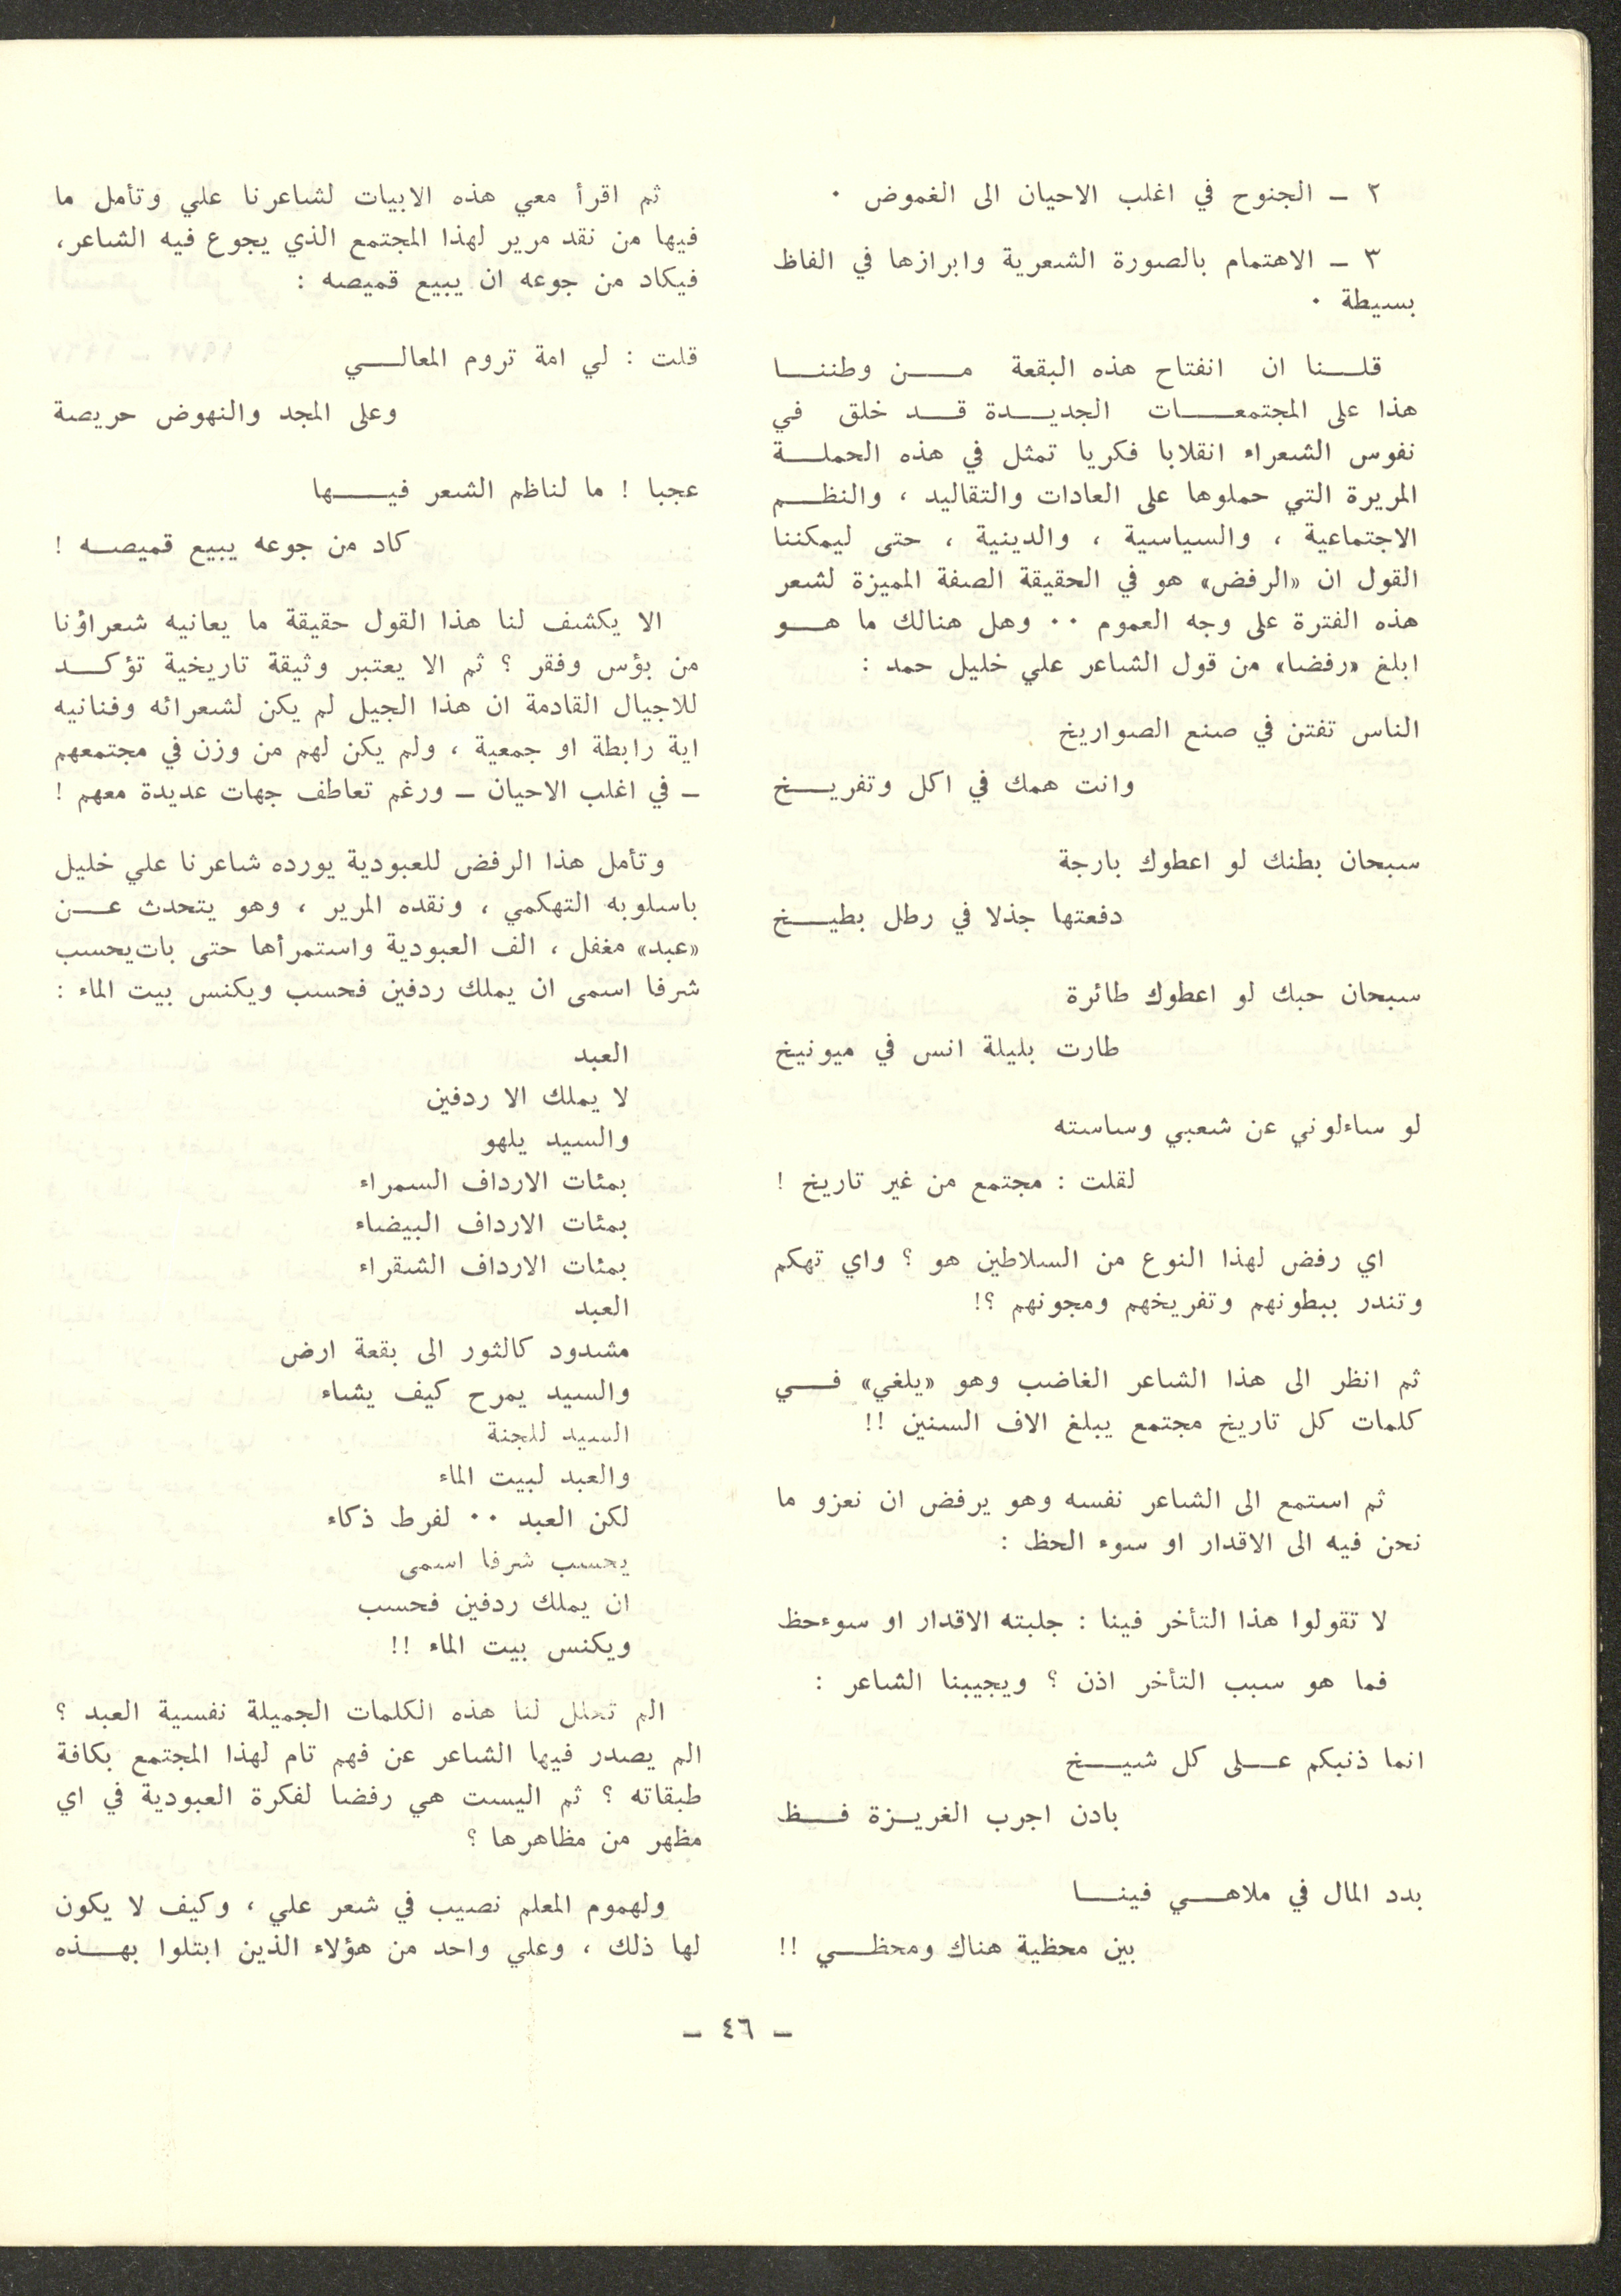 ٢ ــ الجنوح في اغلب الاحيان الى الغموض ٠
٣ ــ الاهتمام بالصورة الشعرية وابرازها في الفاظ
بسيطة ٠
قلنا ان انفتاح هذه البقعة من وطننا
هذا على المجتمعات الجديدة قد خلق في
نفوس الشعراء انقلابا فكريا تمثل في هذه الحملة
المريرة التي حملوها على العادات والتقاليد ، والنظم
الاجتماعية ، والسياسية ، والدينية ، حتى ليمكننا
القول ان «الرفض» هو في الحقيقة الصفة المميزة لشعر
هذه الفترة على وجه العموم ٠٠ وهل هنالك ما هو
ابلغ «رفضا» من قول الشاعر علي خليل حمد :
الناس تفتن في صنع الصواريخ
وانت همك في اكل وتفريخ
سبحان بطنك لو اعطوك بارجة
دفعتها جذلا في رطل بطيخ
سبحان حبك لو اعطوك طائرة
طارت بليلة انس في ميونيخ
لو ساءلوني عن شعبي وساسته
لقلت : مجتمع من غير تاريخ !
اي رفض لهذا النوع من السلاطين هو ؟ واي تهكم
وتندر ببطونهم وتفريخهم ومجونهم ؟!
ثم انظر الى هذا الشاعر الغاضب وهو «يلغي» في
كلمات كل تاريخ مجتمع يبلغ الاف السنين !!
ثم استمع الى الشاعر نفسه وهو يرفض ان نعزو ما
نحن فيه الى الاقدار او سوء الحظ :
لا تقولوا هذا التأخر فينا : جلبته الاقدار او سوءحظ
فما هو سبب التأخر اذن ؟ ويجيبنا الشاعر :
انما ذنبكم على كل شيخ
بادن اجرب الغريزة فظ
بدد المال في ملاهي فينا
بين محظية هناك ومحظي !!
ثم اقرأ معي هذه الابيات لشاعرنا علي وتأمل ما
فيها من نقد مرير لهذا المجتمع الذي يجوع فيه الشاعر،
فيكاد من جوعه ان يبيع قميصه :
قلت : لي امة تروم المعالي
وعلى المجد والنهوض حريصة
عجبا ! ما لناظم الشعر فيها
كاد من جوعه يبيع قميصه !
الا يكشف لنا هذا القول حقيقة ما يعانيه شعراؤنا
من بؤس وفقر ؟ ثم الا يعتبر وثيقة تاريخية تؤكد
للاجيال القادمة ان هذا الجيل لم يكن لشعرائه وفنانيه
اية رابطة او جمعية ، ولم يكن لهم من وزن في مجتمعهم
ــ في اغلب الاحيان ــ ورغم تعاطف جهات عديدة معهم !
وتأمل هذا الرفض للعبودية يورده شاعرنا علي خليل
باسلوبه التهكمي ، ونقده المرير ، وهو يتحدث عن
«عبد» مغفل ، الف العبودية واستمرأها حتى بات يحسب
شرفا اسمى ان يملك ردفين فحسب ويكنس بيت الماء :
العبد
لا يملك الا ردفين
والسيد يلهو
بمئات الارداف السمراء
بمئات الارداف البيضاء
بمئات الارداف الشقراء
العبد
مشدود كالثور الى بقعة ارض
والسيد يمرح كيف يشاء
السيد للجنة
والعبد لبيت الماء
لكن العبد ٠٠ لفرط ذكاء
يحسب شرفا اسمى
ان يملك ردفين فحسب
ويكنس بيت الماء !!
الم تحلل لنا هذه الكلمات الجميلة نفسية العبد ؟
الم يصدر فيها الشاعر عن فهم تام لهذا المجتمع بكافة
طبقاته ؟ ثم اليست هي رفضا لفكرة العبودية في اي
مظهر من مظاهرها ؟
ولهموم المعلم نصيب في شعر علي ، وكيف لا يكون
لها ذلك ، وعلي واحد من هؤلاء الذين ابتلوا بهذه
ــ ٤٦ ــ